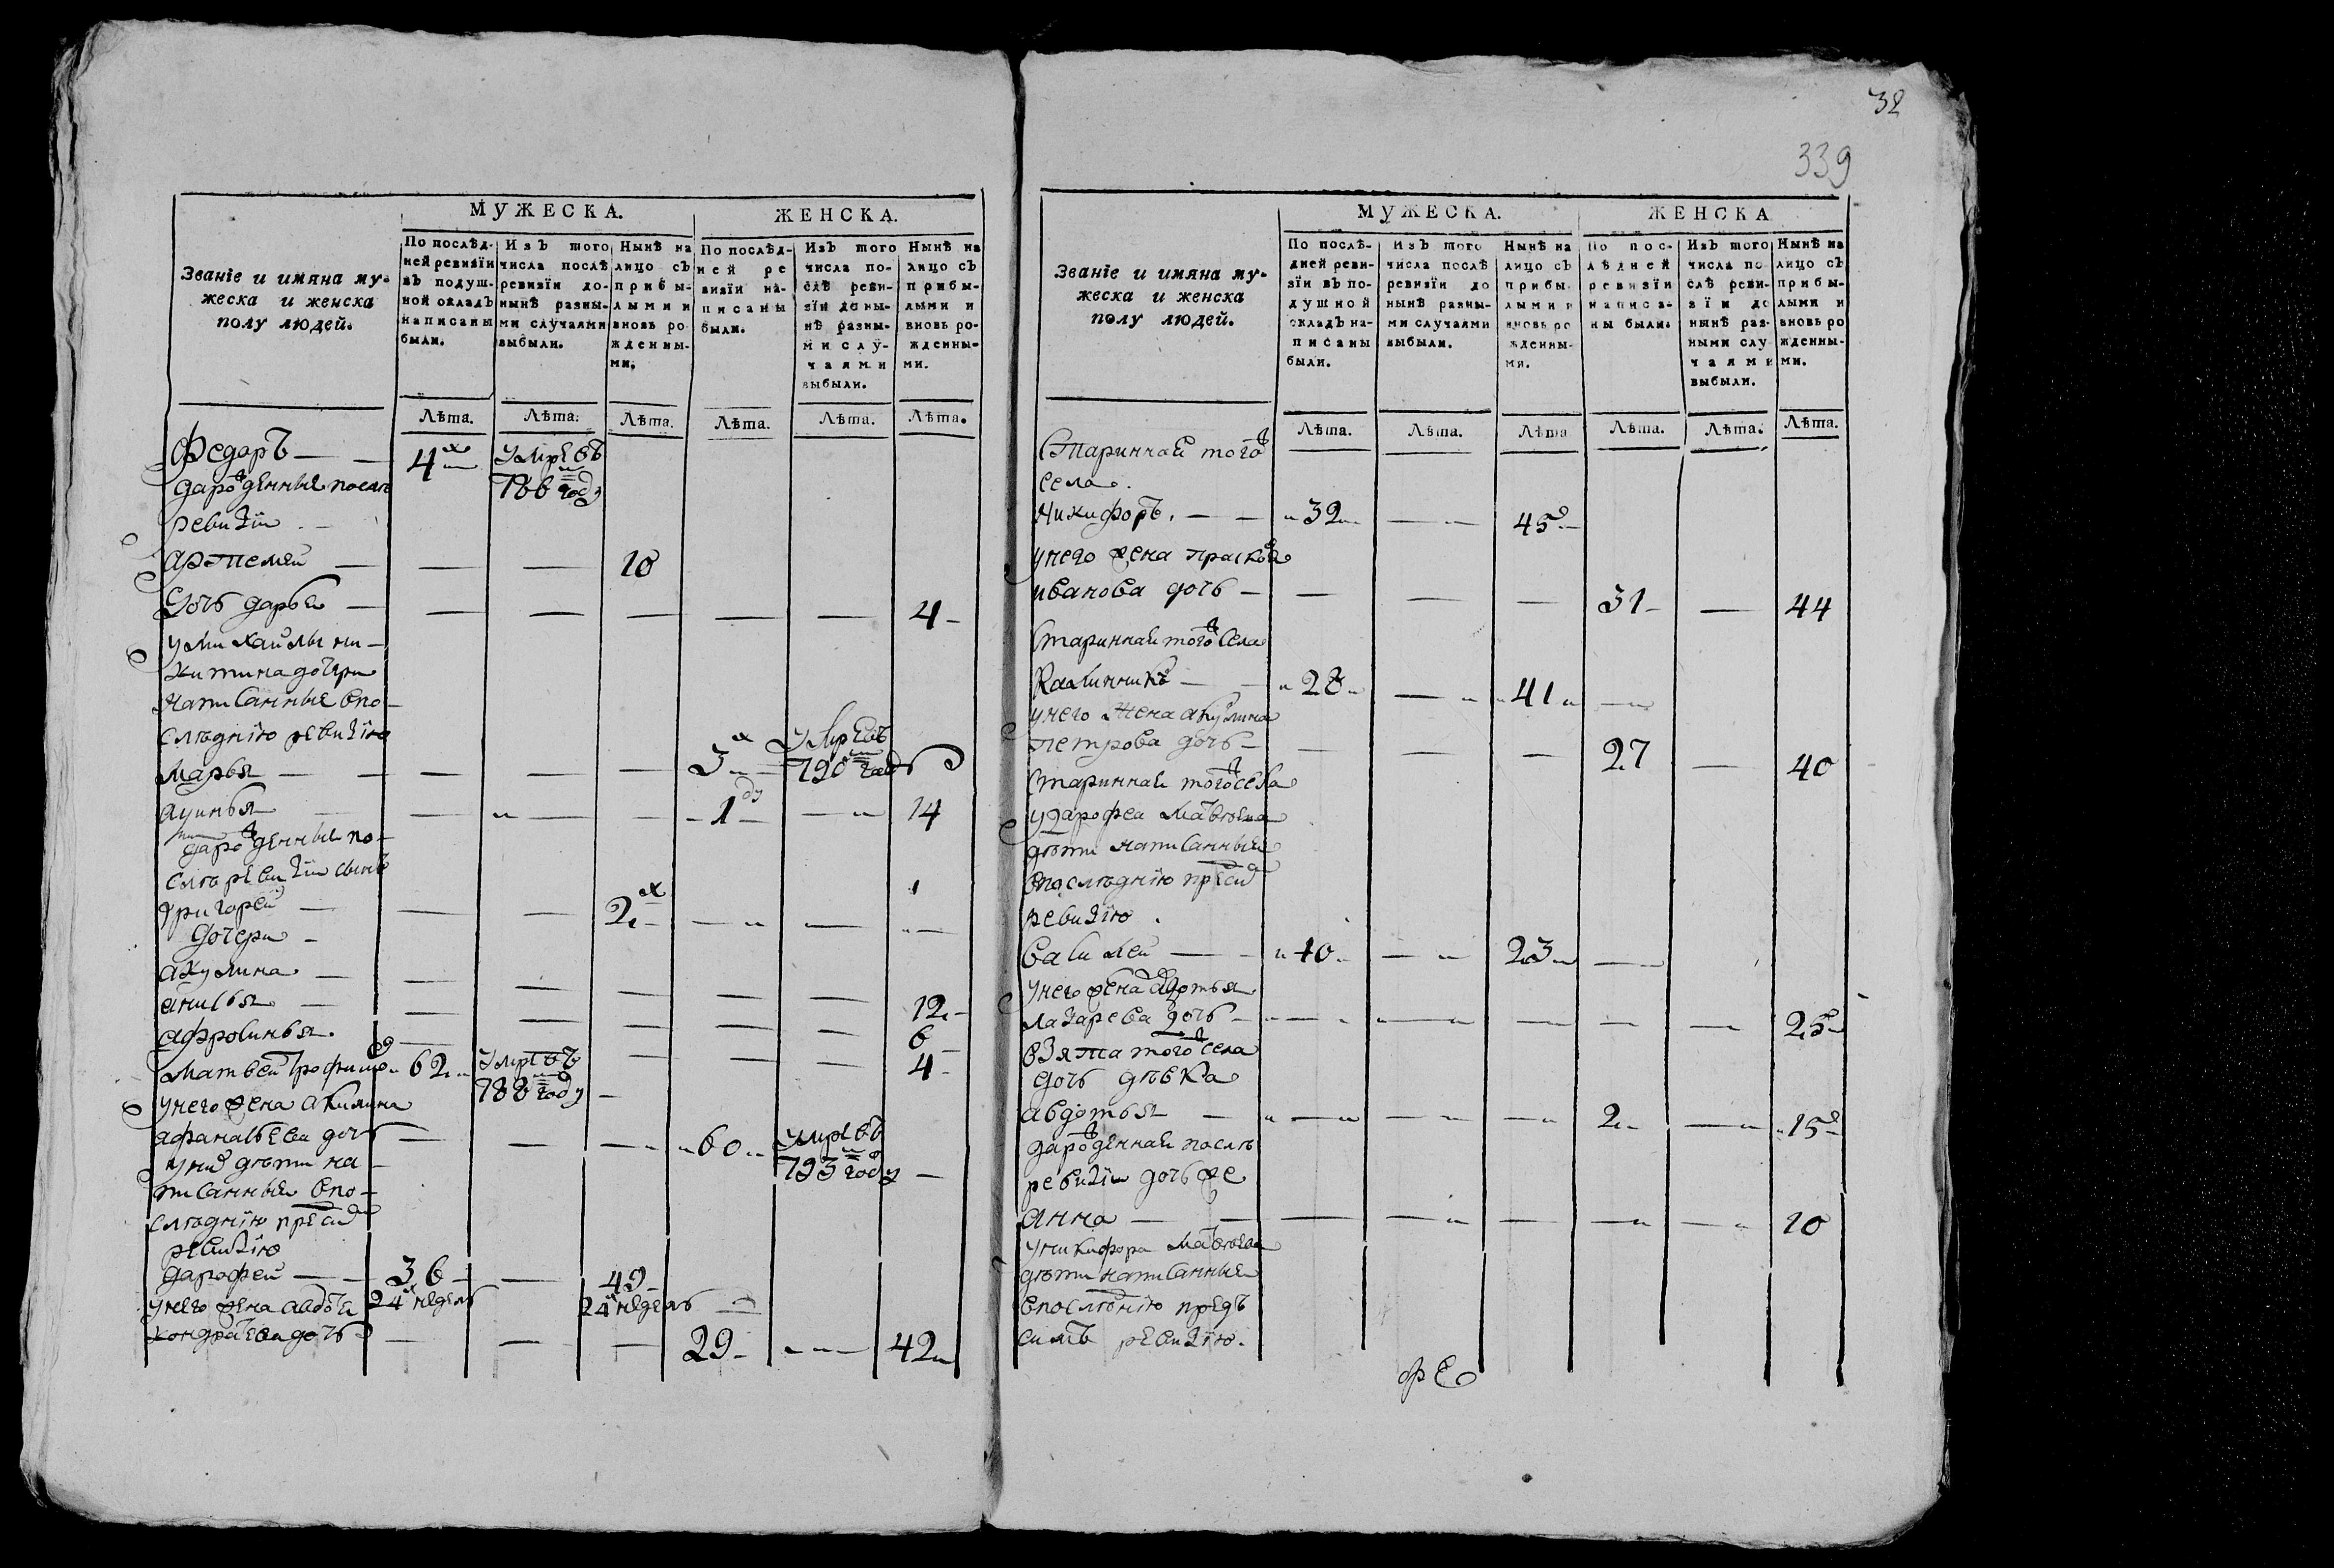 32
339
МУЖЕСКА. ЖЕНСКА.
Званіе и имяна му-
жеска и женска
полу людей.
По послѣд-
ней ревизіи
въ подуш-
ной окладъ
написаны
были.
Изъ того
числа послѣ
ревизіи до-
нынѣ разны-
ми случаями
выбыли.
Нынѣ на
лицо съ
прибы-
лыми и
вновь ро
жденны-
ми.
По послѣд-
ней ре
визіи на-
писаны
были.
Изъ того
числа по-
слѣ реви-
зіи до ны-
нѣ разны-
ми слу-
чаями
выбыли.
Нынѣ на
лицо съ
прибы-
лыми и
вновь ро-
жденны-
ми.
Лѣта. Лѣта. Лѣта. Лѣта. Лѣта. Лѣта.
Федаръ — 4х умревъ
786м году
дарожденные послѣ
ревизіи
Артемей — — — 10
Дочь дарья — — — — — — 4
у михайлы ни-
китина дочери
написанные впо-
слѣднію ревизію
Марья — — — — 3х умревъ
790м году
аѳинья — — — 1ду — 14
дарожденные по-
слѣ ревизіи сынъ
григорей — — — 2х — —
дочери
акулина — — — — — — 12
анисья — — — — — — 6
афросинья — — — — — 4
Матвей трофимовъ 62 умревъ
788м году —
у него жена акилина
афанасьева дочь — — — 60 умревъ
793м году —
у них дети на-
писанныя впо-
слѣднію пред сим
ревизію
дарофей — 36 — 49
24 недель 24 недель
у него жена авдотья
кондратьева дочь — — — 29 — 42
МУЖЕСКА. ЖЕНСКА
Званіе и имяна му-
жеска и женска
полу людей.
По послѣ-
дней реви-
зіи въ по-
душной
окладъ на-
писаны
были.
Изъ того
числа послѣ
ревизіи до
нынѣ разны-
ми случаями
выбыли.
Нынѣ на
лицо съ
прибы-
лыми и
вновь ро
жденны-
ми.
По пос-
лѣдней
ревизіи
написа-
ны были.
Изъ того
числа по
слѣ реви-
зіи до
нынѣ раз-
ными слу
чаями
выбыли.
Нынѣ на
лицо съ
прибы-
лыми и
вновь ро
жденны-
ми.
Лѣта. Лѣта. Лѣта Лѣта. Лѣта. Лѣта.
Стариннай того ж
села.
Никифоръ. — 32 — 45
у него жена прасковья
иванова дочь — — — — 31 — 44
Стариннай того ж села
Калинникъ — 28 — 41 —
у него жена акулина
петрова дочь — — — — 27 — 40
Стариннай того ж села
у дарофея Матвѣева
дѣти написанныя
впослѣднію пред сим
ревизію.
Василей — 10 — 23 —
у него жена авдотья
лазарева дочь — — — — — — 25
взята того ж села
дочь дѣвка
авдотья — — — — 2 — 15
дарожденная послѣ
ревизіи дочь же
анна — — — — — — 10
у никифора Матвѣева
дѣти написанныя
впослѣднію предъ
симъ ревизію.